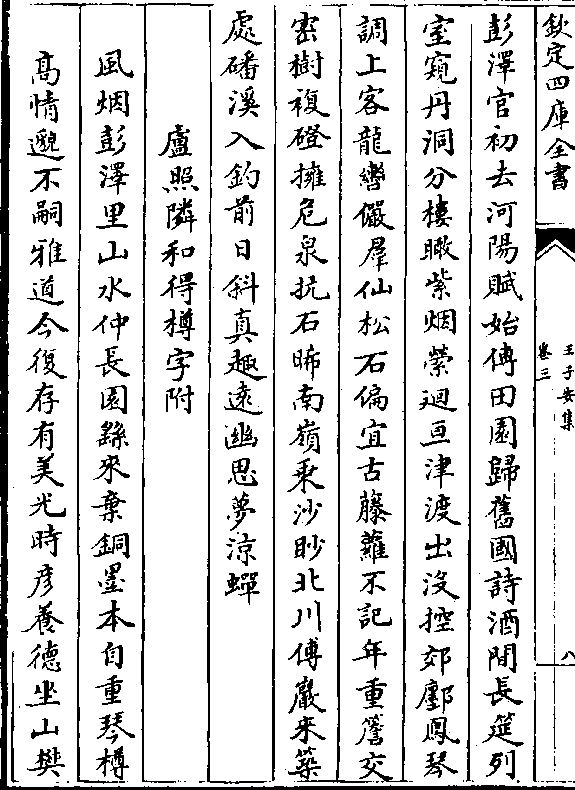 欽定四庫全書
王子安集
卷三
八
彭澤官初去河陽賦始傳田園歸舊國詩酒間長筵列
室窺丹洞分樓瞰紫烟縈廻亘津渡出沒控郊鄽鳳琴
調上客龍轡儼羣仙松石偏宜古藤蘿不記年重簷交
密樹複磴擁危泉抗石晞南嶺乗沙眇北川傅巖来築
處磻溪入釣前日斜真趣逺幽思夢涼蟬
盧照隣和得樽字附
風烟彭澤里山水仲長園繇來棄銅墨本自重琴樽
髙情邈不嗣雅道今復存有美光時彦養德坐山樊